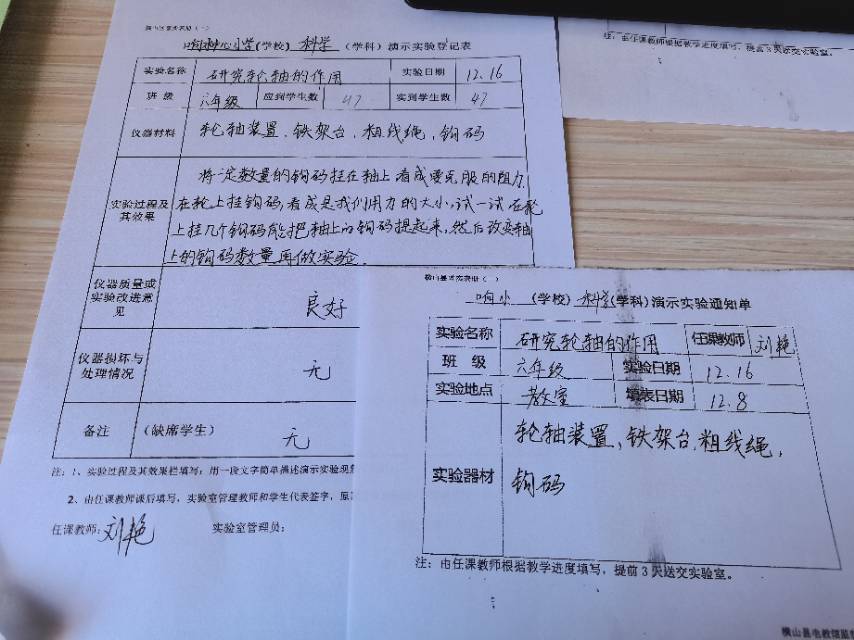 心小学(学校) 科学 (学科) 演示实验登记表
实验名称 研究轮轴的作用 实验日期 12.16
班 级 六年级 应到学生数 47 实到学生数 47
仪器材料 轮轴装置,铁架台,粗线绳,钩码
实验过程及其效果
将一定数量的钩码挂在轴上看成要克服的阻力
在轮上挂钩码,看成是我们用力的大小,试一试在轮
上挂几个钩码能把轴上的钩码提起来,然后改变轴
上的钩码数量再做实验.
仪器质量或实验改进意见 良好
仪器损坏与处理情况 无
备注 (缺席学生) 无
注:1、实验过程及其效果栏填写:用一段文字简单描述演示实验现
2、由任课教师课后填写,实验室管理教师和学生代表签字,
任课教师:刘艳 实验室管理员:
注:由任课教师根据教学进度填写,提前3天送交实验室。
响小 (学校) 科学(学科)演示实验通知单
实验名称 研究轮轴的作用 任课教师 刘艳
班 级 六年级 实验日期 12.16
实验地点 教室 填表日期 12.8
实验器材 轮轴装置,铁架台,粗线绳,
钩码
注:由任课教师根据教学进度填写,提前3天送交实验室。
横山县电教馆